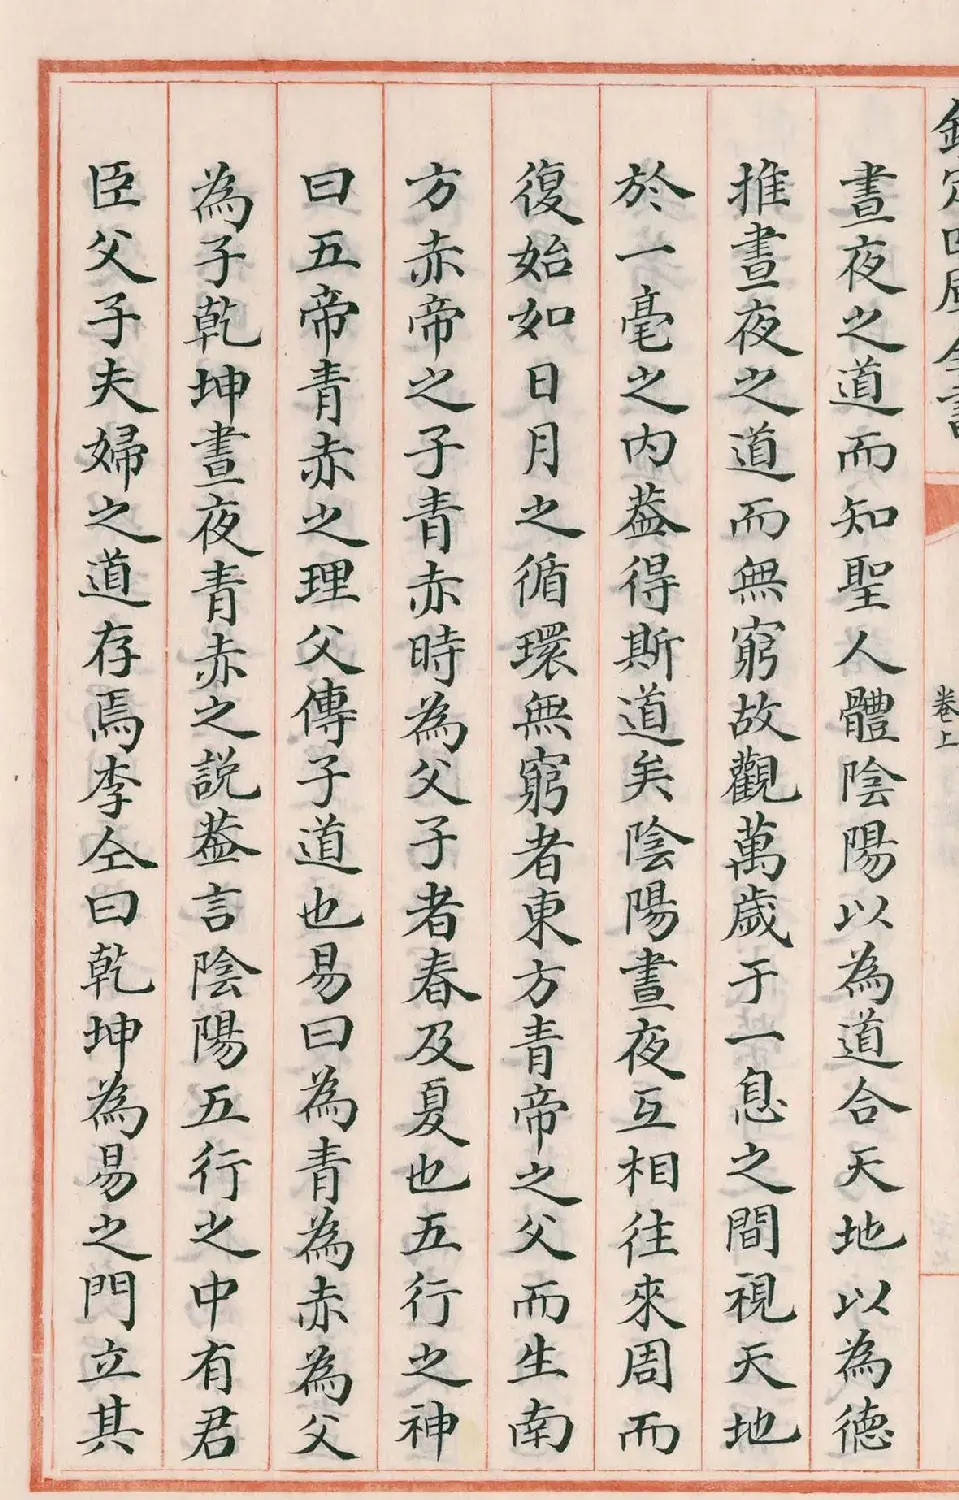 欽定四庫全書
卷上
晝夜之道而知聖人體陰陽以為道合天地以為德
推晝夜之道而無窮故觀萬歲于一息之間視天地
於一毫之内葢得斯道矣陰陽晝夜互相往來周而
復始如日月之循環無窮者東方青帝之父而生南
方赤帝之子青赤時為父子者春及夏也五行之神
曰五帝青赤之理父傳子道也易曰為青為赤為父
為子乾坤晝夜青赤之説葢言陰陽五行之中有君
臣父子夫婦之道存焉李仝曰乾坤為易之門立其